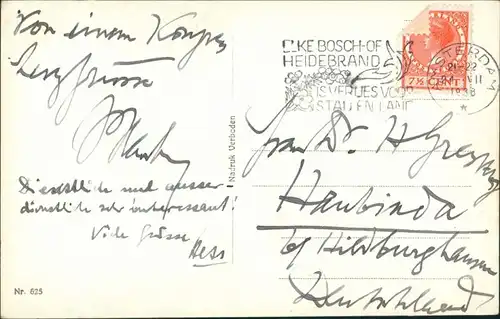 Von einem Kongress
herzl. Grüsse
Dienstliche und ausser-
dienstliche sehr interessant!
Viele Grüsse
Hess
Nr. 625
Nadruk Verboden
ELKE BOSCH- OF
HEIDEBRAND
IS VERLIES VOOR
STAD EN LAND
AMSTERDAM
21-22
VII
1938
7½ CENT
Dr. H
Haubinda
b/ Hildburghausen
Deutschland